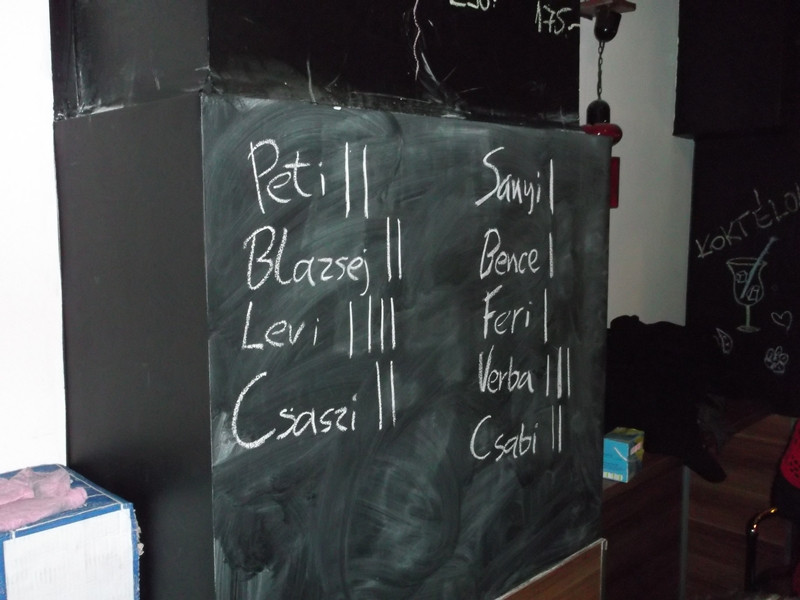 175.-
Peti ||
Blazsej ||
Levi ||||
Csaszi ||
Sanyi |
Bence |
Feri |
Verba |||
Csabi ||
KOKTÉLO